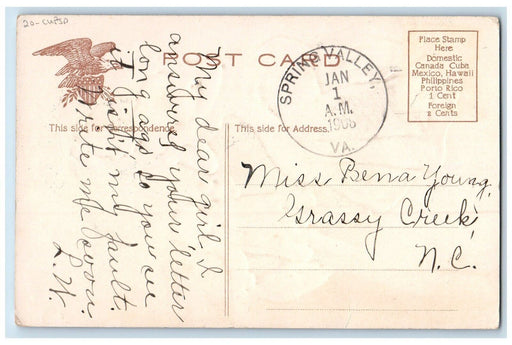 20-CUPSP
POST CARD
Place Stamp
Here
Domestic
Canada Cuba
Mexico, Hawaii
Philippines
Porto Rico
1 Cent
Foreign
2 Cents
SPRING VALLEY,
JAN
1
A.M.
1908
VA.
This side for Correspondence.
This side for Address.
My dear girl I
answerd your letter
long ago so you see
it isn't my fault.
Write me soon.
L.W.
Miss Bena Young,
Grassy Creek,
N.C.